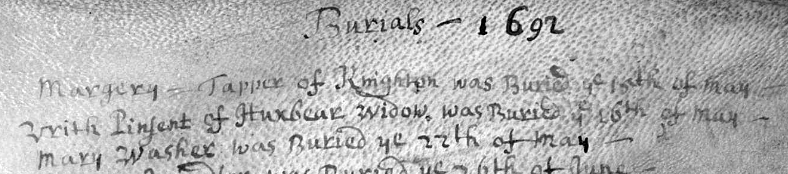 Burials - 1692
Margery - Tapper of Knighton was Buried ye 15th of May -
Vrith Pinsent of Huxbear Widow, was Buried ye 16th of May -
Mary Washer was Buried ye 22th of May -
was Buried ye 26th of June -